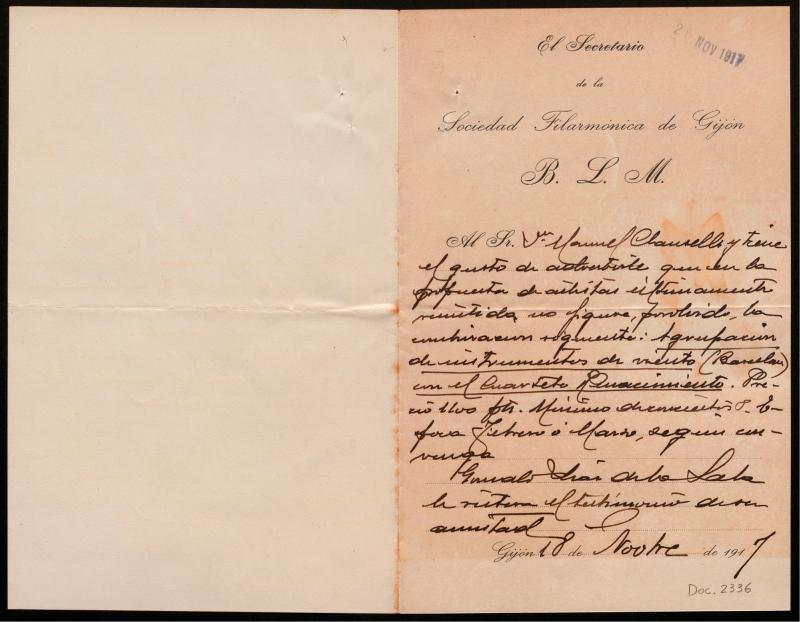 El Secretario
NOV 1917
de la
Sociedad Filarmónica de Gijón
B. L. M.
Al Sr. Dn. Manuel Clausells y tiene
el gusto de advertirle que en la
propuesta de artistas últimamente
remitida, no figura, por olvido, la
combinacion siguiente: Agrupacion
de instrumentos de viento (Barcelona)
con el Cuarteto Renacimiento. Pre-
cio 1100 pts. Minimo de conciertos 8. E-
poca Febrero ó Marzo, segun con-
venga
Gonzalo Diaz de la Sala
le reitera el testimonio de su
amistad
Gijón 18 de Novbre de 1917
Doc. 2336